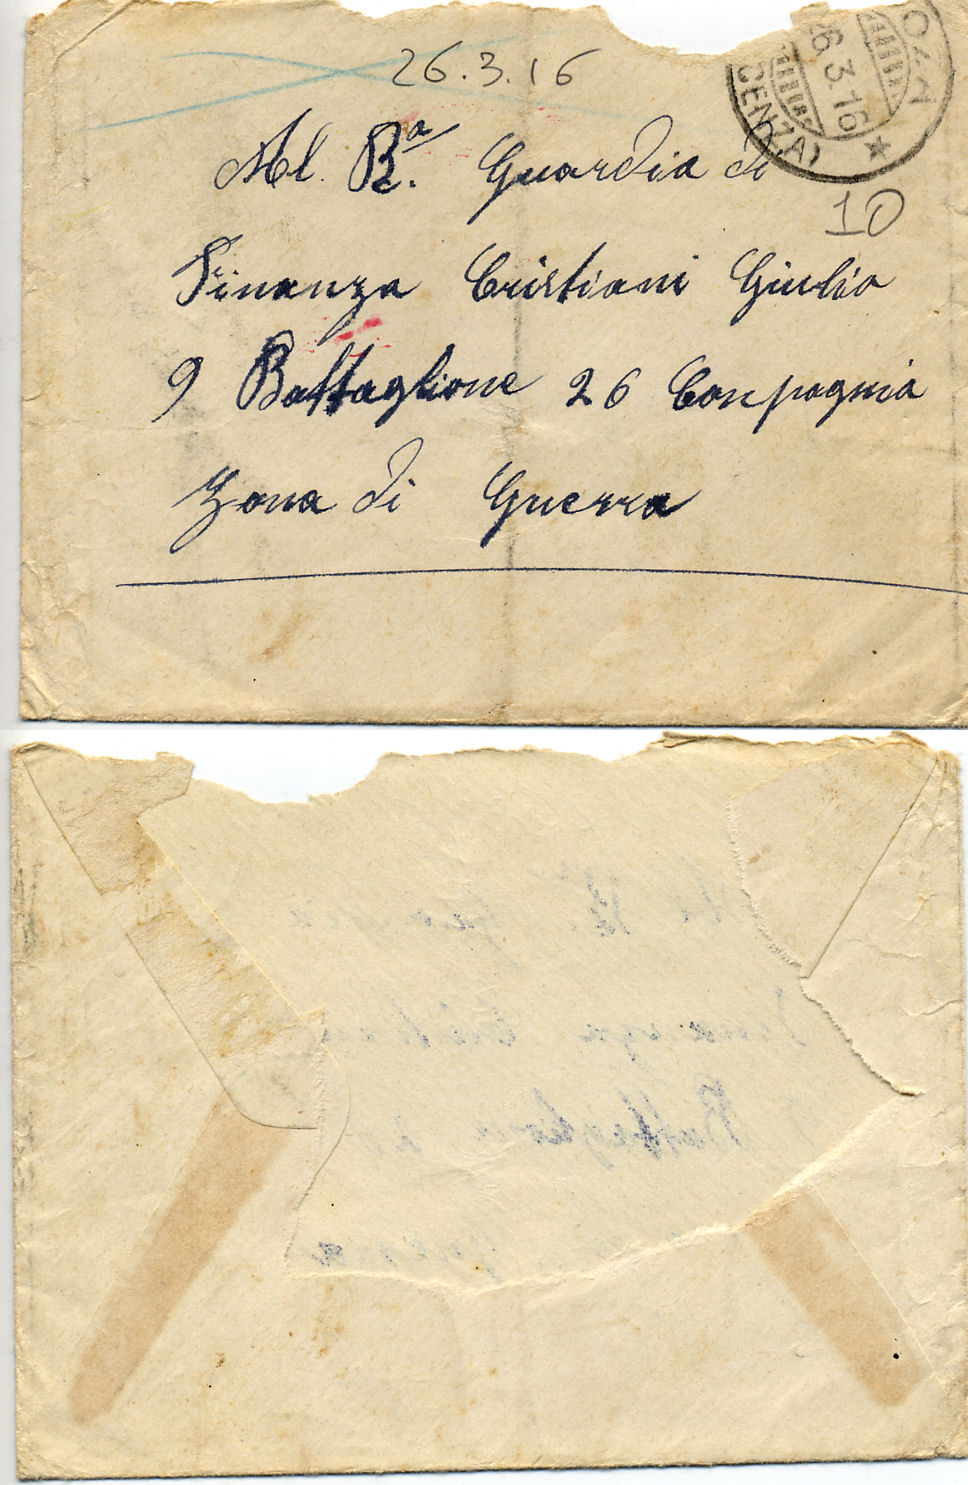 26.3.16
Al. Ra. Guardia di
Finanza Cristiani Giulio
9 Battaglione 26 Conpagnia
Zona di Guerra
6 3.16
CENZA)
10